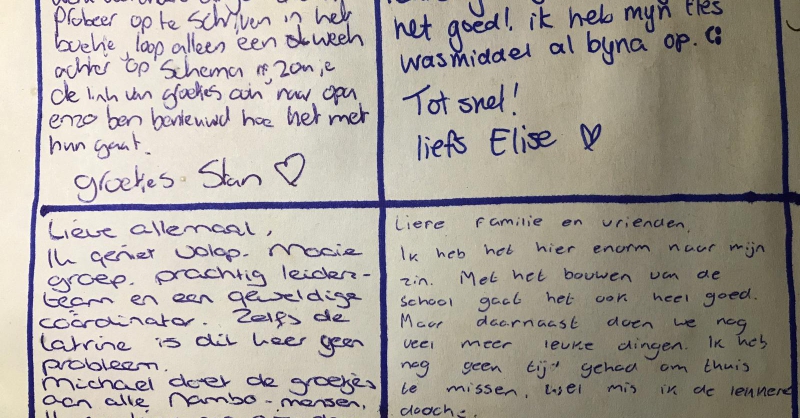 Probeer op te schrijven in het
boekje, loop alleen een week
achter op schema
de link van groetjes aan naar opa
enzo ben benieuwd hoe het met
hun gaat.
groetjes Stan
het goed! ik heb mijn fles
wasmiddel al bijna op.
Tot snel!
liefs Elise
Lieve allemaal,
Ik geniet volop. Mooie
groep, prachtig leiders-
team en een geweldige
coördinator. Zelfs de
latrine is dit keer geen
probleem.
Michael doet de groetjes
aan alle Nambo-mensen.
Lieve familie en vrienden,
Ik heb het hier enorm naar mijn
zin. Met het bouwen van de
school gaat het ook heel goed.
Maar daarnaast doen we nog
veel meer leuke dingen. Ik heb
nog geen tijd gehad om thuis
te missen, wel mis ik de
douche.